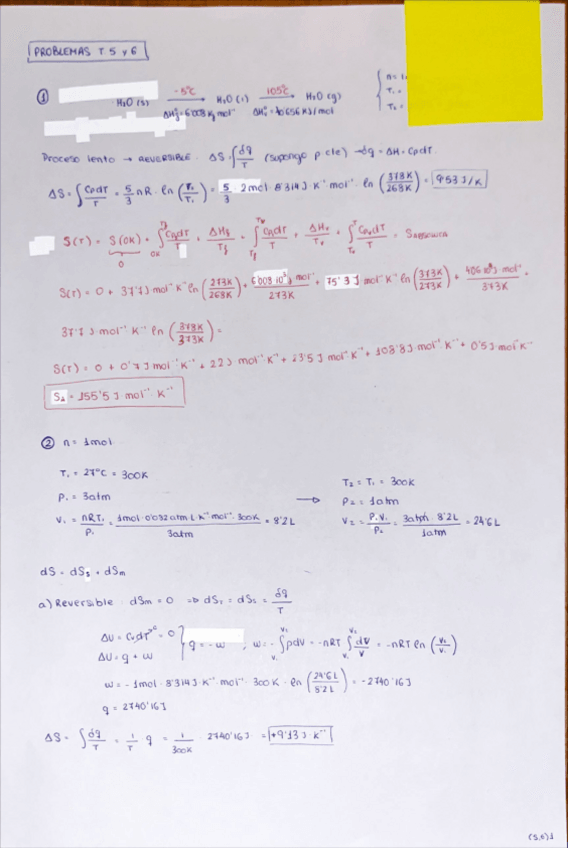 PROBLEMAS T. 5 y 6
① H₂O (s) -5ºC → H₂O (l) 105ºC → H₂O (g)
n=
T₁ =
T₂ =
ΔHf = 6'008 Kj mol⁻¹ ΔHv = 40'656 KJ/mol
Proceso lento → REVERSIBLE. ΔS = ∫ dq/T (supongo p cte) → dq = ΔH = CpdT.
ΔS = ∫ CpdT/T = 5/3 nR · ln (T₂/T₁) = 5/3 · 2mol · 8'314 J·K⁻¹ mol⁻¹ · ln (378K/268K) = 9'53 J/K
S(T) = S(0K) + ∫ CpdT/T + ΔHf/Tf + ∫ CpdT/T + ΔHv/Tv + ∫ CpdT/T =
S(T) = 0 + 37'7 J mol⁻¹ K⁻¹ ln (273K/268K) + 6'008·10³ J mol⁻¹/273K + 75'3 J mol⁻¹ K⁻¹ ln (373K/273K) + 40'6·10³ J·mol⁻¹/373K +
37'7 J mol⁻¹ K⁻¹ ln (378K/373K) =
S(T) = 0 + 0'7 J mol⁻¹ K⁻¹ + 22 J · mol⁻¹ K⁻¹ + 23'5 J mol⁻¹ K⁻¹ + 108'8 J·mol⁻¹ K⁻¹ + 0'5 J mol⁻¹ K⁻¹
= 155'5 J mol⁻¹ K⁻¹
② n = 1mol
T₁ = 27ºC = 300K
P₁ = 3atm
V₁ = nRT₁/P₁ = 1mol·0'082 atm L K⁻¹ mol⁻¹·300K/3atm = 8'2 L
→
T₂ = T₁ = 300K
P₂ = 1atm
V₂ = P₁V₁/P₂ = 3atm·8'2L/1atm = 24'6 L
dS = dSs + dSm
a) Reversible dSm = 0 ⇒ dSs = dSs = dq/T
ΔU = CvdT = 0
ΔU = q + w
q = -w ; w = -∫ pdV = -nRT ∫ dV/V = -nRT ln (V₂/V₁)
w = -1mol · 8'314 J·K⁻¹ mol⁻¹ · 300K · ln (24'6L/8'2L) = -2740'16 J
q = 2740'16 J
ΔS = ∫ dq/T = 1/T · q = 1/300K · 2740'16 J = +9'13 J·K⁻¹
(5,6)1